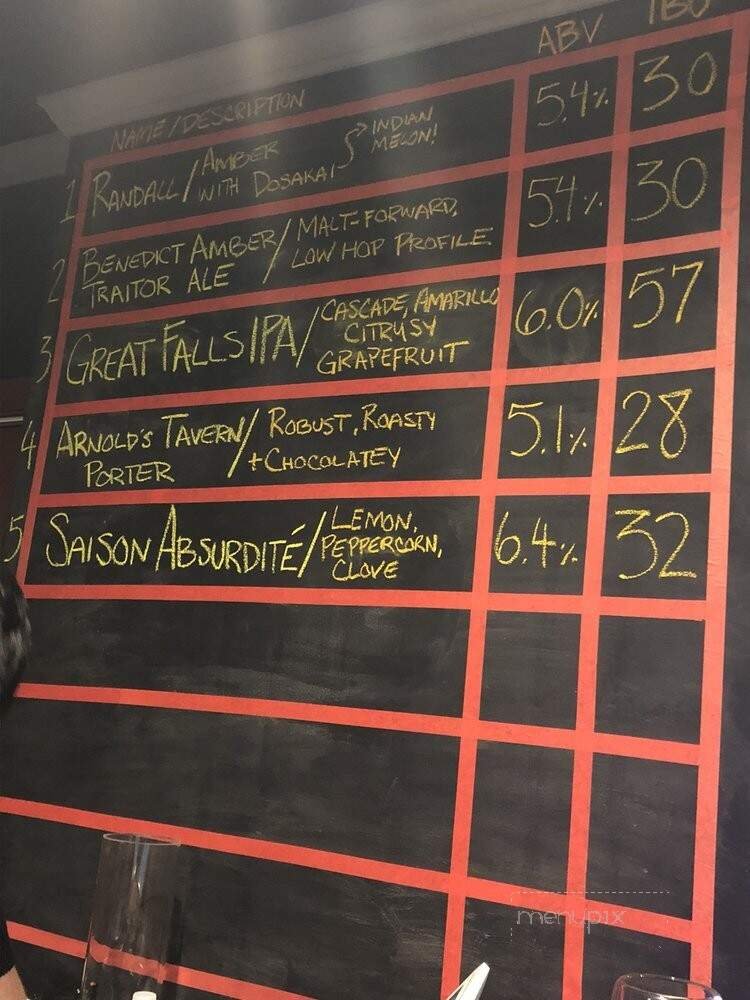 NAME/DESCRIPTION ABV IBU
1 RANDALL / AMBER WITH DOSAKAI INDIAN MELON! 5.4% 30
2 BENEDICT AMBER / MALT-FORWARD,
TRAITOR ALE LOW HOP PROFILE 5.4% 30
3 GREAT FALLS IPA / CASCADE, AMARILLO
CITRUSY
GRAPEFRUIT 6.0% 57
4 ARNOLD'S TAVERN / ROBUST, ROASTY
PORTER + CHOCOLATEY 5.1% 28
5 SAISON ABSURDITÉ / LEMON,
PEPPERCORN,
CLOVE 6.4% 32
menupix